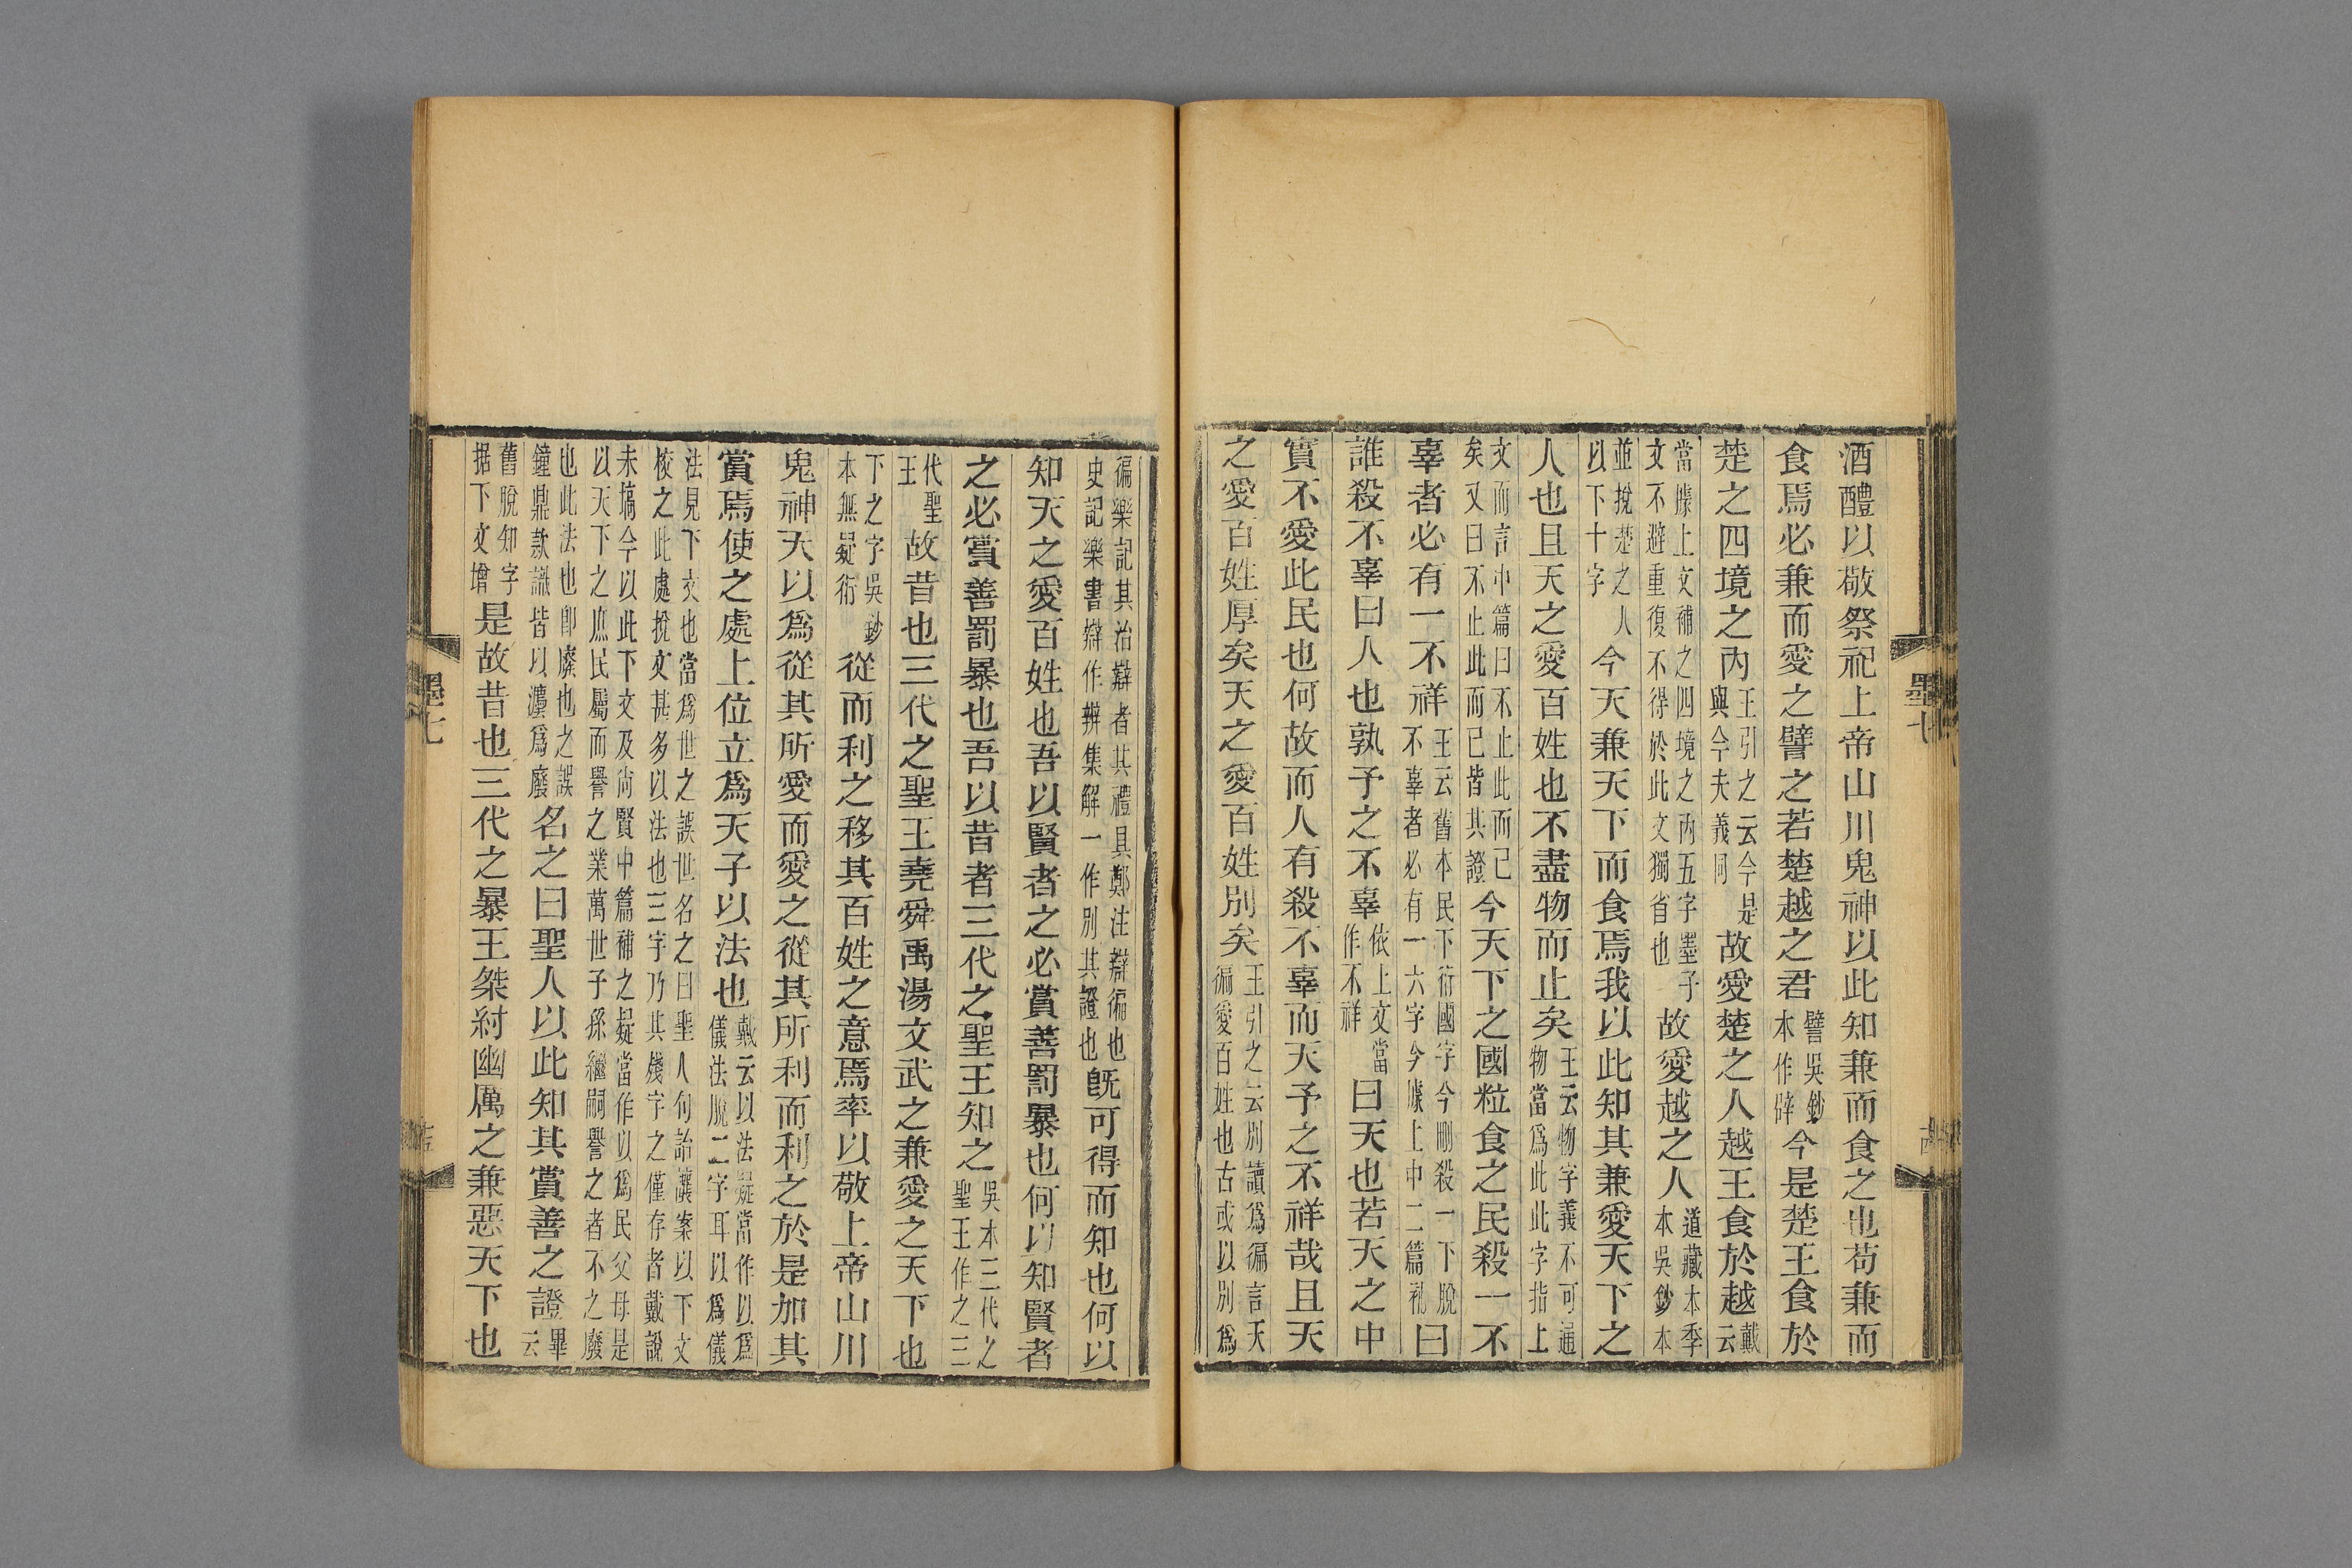 酒醴以敬祭祀上帝山川鬼神以此知兼而食之也苟兼而
食焉必兼而愛之譬之若楚越之君譬吳鈔本作辟今是楚王食於
楚之四境之內王引之云今是與今夫義同故愛楚之人越王食於越戴云
當據上文補之四境之內五字墨子文不避重復不得於此文獨省也故愛越之人道藏本季本吳鈔本
並挩楚之人以下十字今天兼天下而食焉我以此知其兼愛天下之
人也且天之愛百姓也不盡物而止矣王云物字義不可通物當爲此此字指上
文而言中篇曰不止此而已矣又曰不止此而已皆其證今天下之國粒食之民殺一不
辜者必有一不祥王云舊本民下衍國字今刪殺一下脫不辜者必有一六字今據上中二篇補曰
誰殺不辜曰人也孰予之不辜依上文當作不祥曰天也若天之中
實不愛此民也何故而人有殺不辜而天予之不祥哉且天
之愛百姓厚矣天之愛百姓別矣王引之云別讀爲徧言天徧愛百姓也古或以別爲
墨七
徧樂記其治辯者其禮具鄭注辯徧也史記樂書辯作辨集解一作別其證也旣可得而知也何以
知天之愛百姓也吾以賢者之必賞善罰暴也何以知賢者
之必賞善罰暴也吾以昔者三代之聖王知之吳本三代之聖王作之三
代聖王故昔也三代之聖王堯舜禹湯文武之兼愛之天下也
下之字吳鈔本無疑衍從而利之移其百姓之意焉率以敬上帝山川
鬼神天以爲從其所愛而愛之從其所利而利之於是加其
賞焉使之處上位立爲天子以法也戴云以法疑當作以爲儀法脫二字耳以爲儀
法見下文也當爲世之誤世名之曰聖人句詒讓案以下文校之此處挩文甚多以法也三字乃其殘字之僅存者戴說
未塙今以此下文及尚賢中篇補之疑當作以爲民父母是以天下之庶民屬而譽之業萬世子孫繼嗣譽之者不之廢
也此法也卽廢也之誤鐘鼎款識皆以灋爲廢名之曰聖人以此知其賞善之證畢云
舊脫知字据下文增是故昔也三代之暴王桀紂幽厲之兼惡天下也
墨七